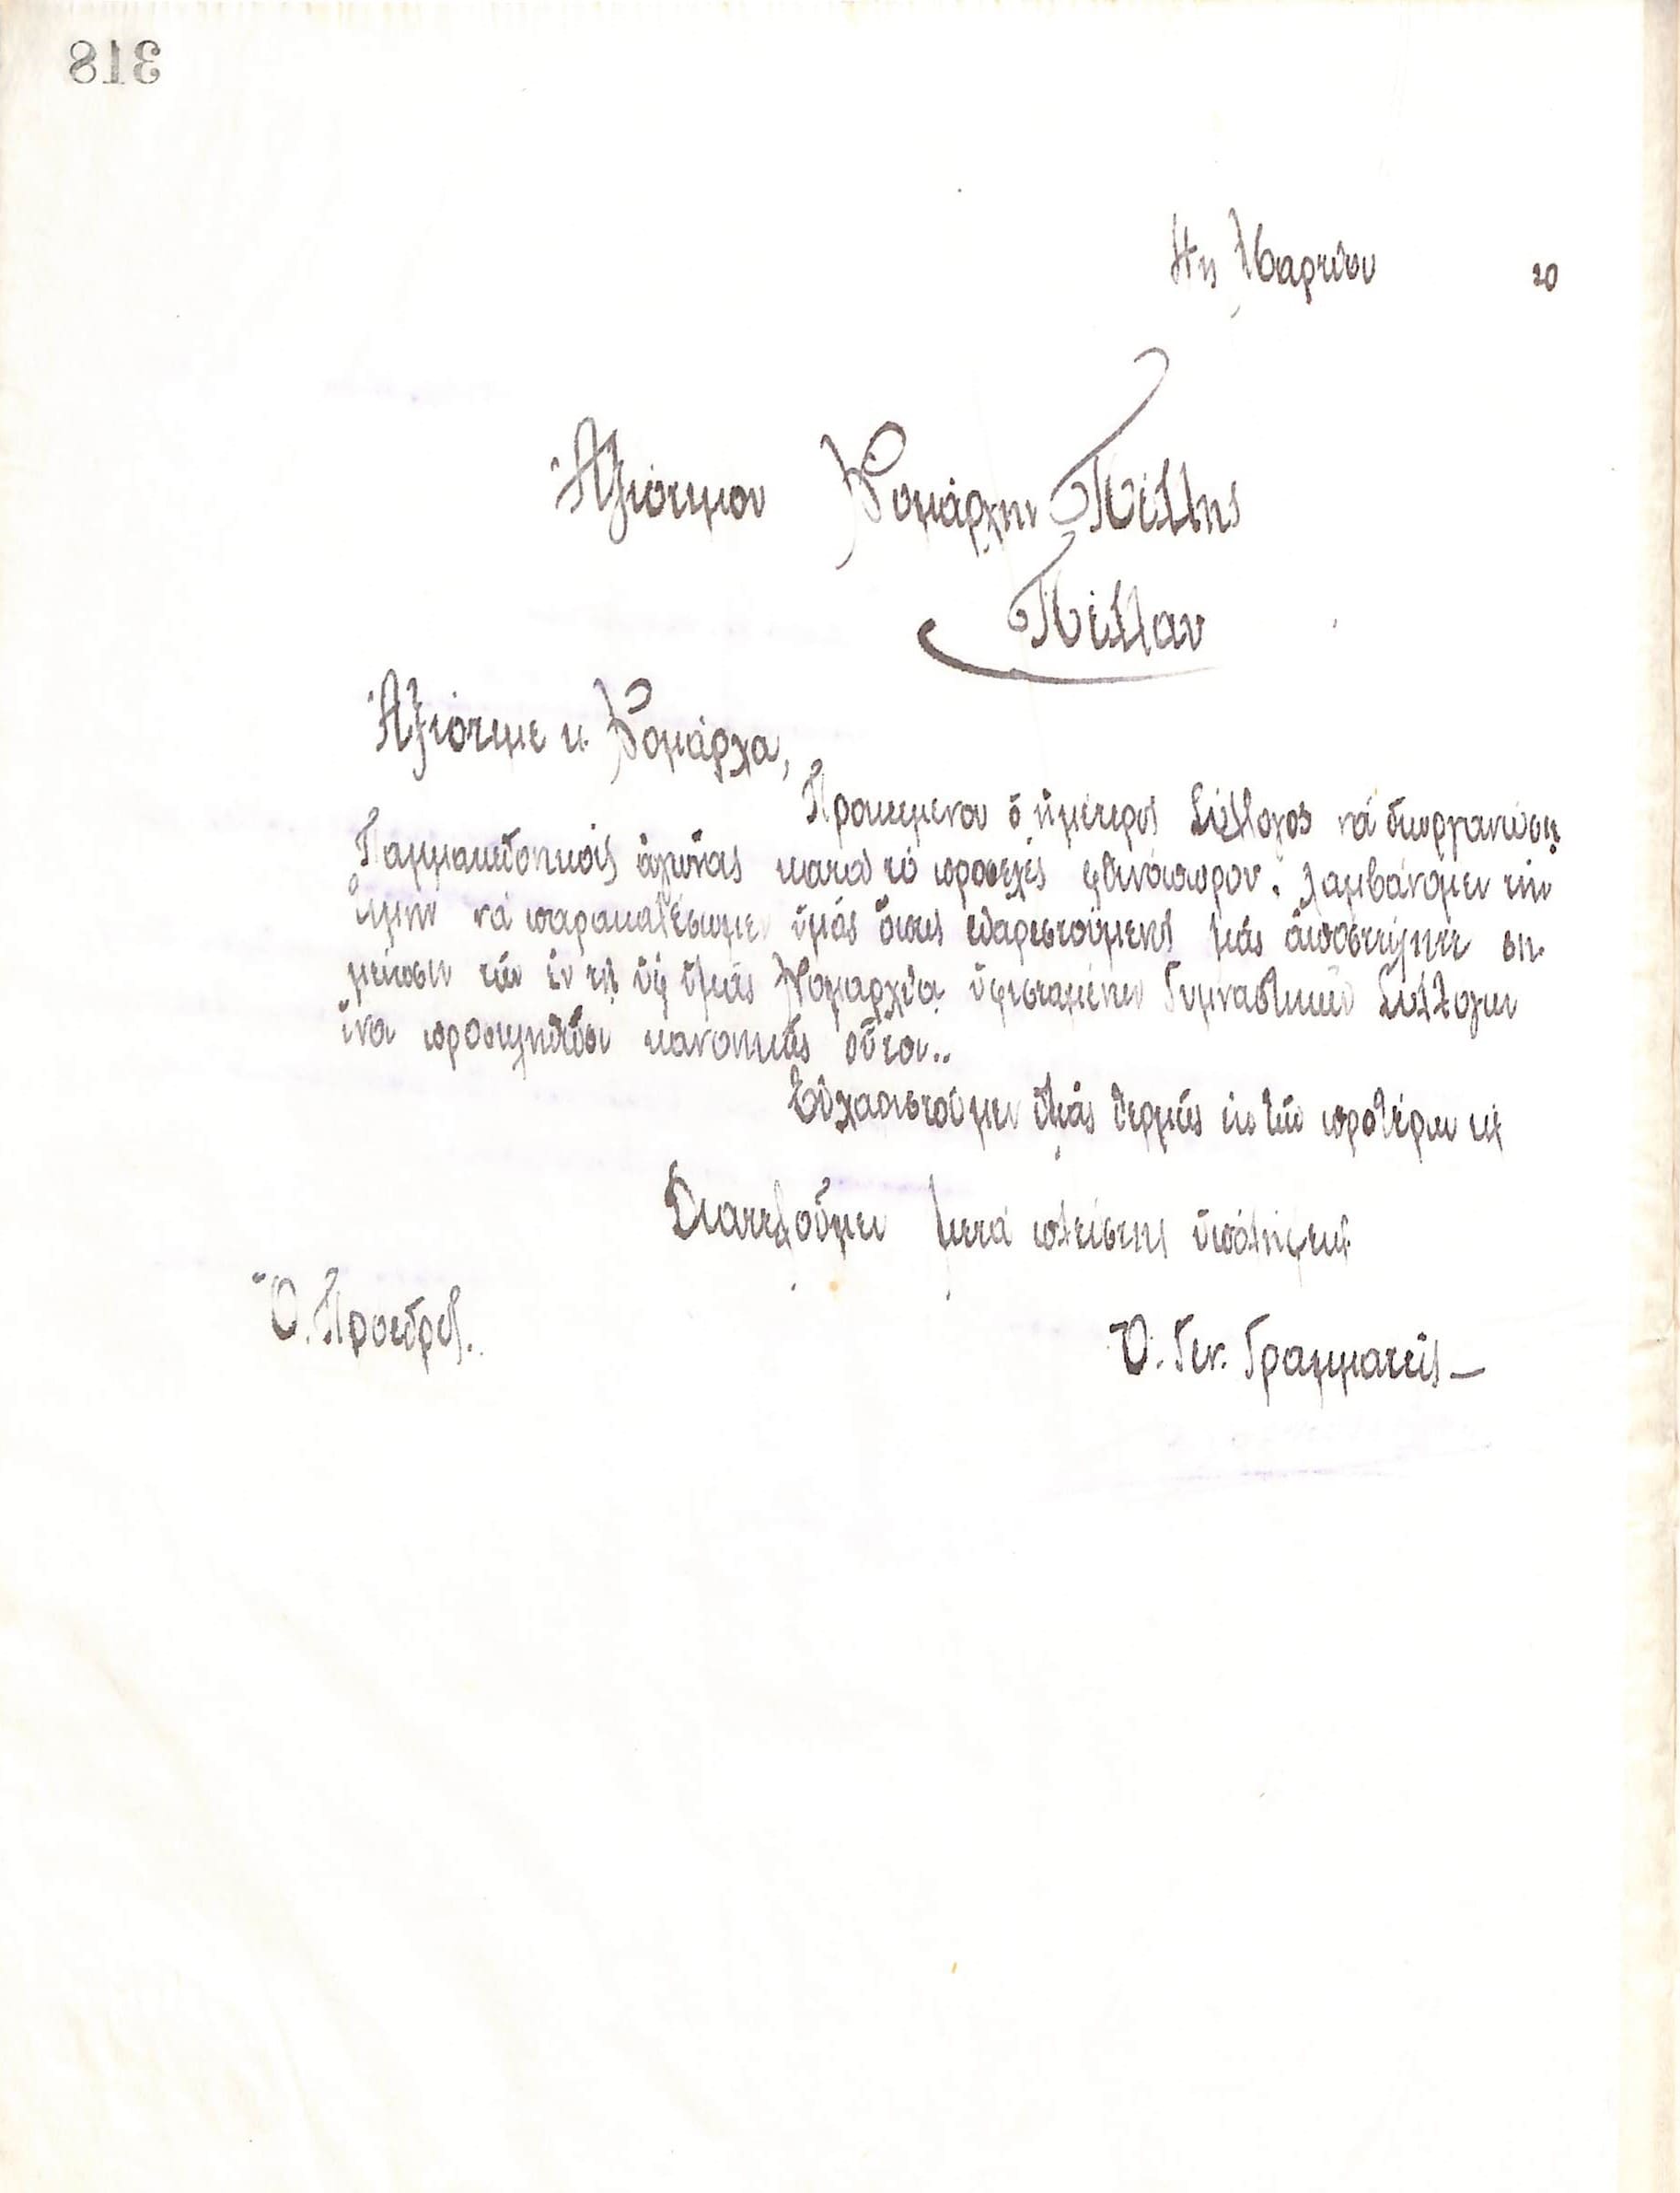 318
4ης Μαρτίου 20
Ἀξιότιμον Νομάρχην Πέλλης
Πέλλαν
Ἀξιότιμε κ. Νομάρχα,
Προκειμένου ὁ ἡμέτερος Σύλλογος νά διοργανώσῃ
Παμμακεδονικούς ἀγῶνας κατά τό προσεχές φθινόπωρον, λαμβάνομεν τήν
τιμήν νά παρακαλέσωμεν ὑμᾶς ὅπως εὐαρεστούμενος μᾶς ἀποστείλητε ση-
μείωσιν τῶν ἐν τῇ ὑφ' ὑμᾶς Νομαρχίᾳ ὑφισταμένων Γυμναστικῶν Συλλόγων
ἵνα προσκληθῶσι κανονικῶς οὗτοι..
Εὐχαριστοῦμεν ὑμᾶς θερμῶς ἐκ τῶν προτέρων κ
Διατελοῦμεν μετά πλείστης ὑπολήψεως
Ὁ. Πρόεδρος.
Ὁ. Γεν. Γραμματεύς –